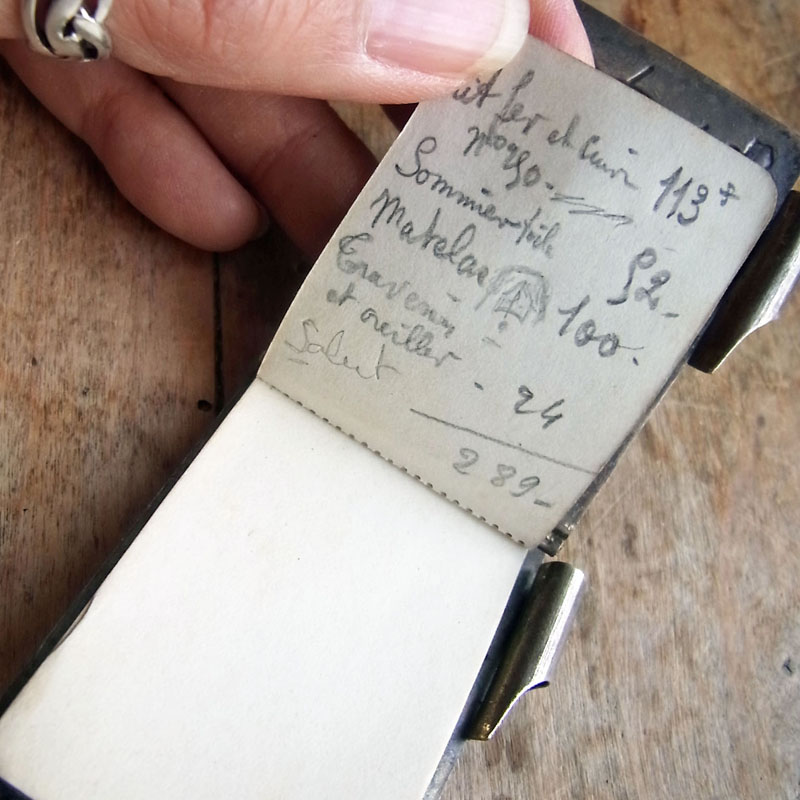 Lit fer et Cuivre 113 f
Sommier toile 52-
Matelas 100-
Traversin
et oreiller - 24
Salut
289-